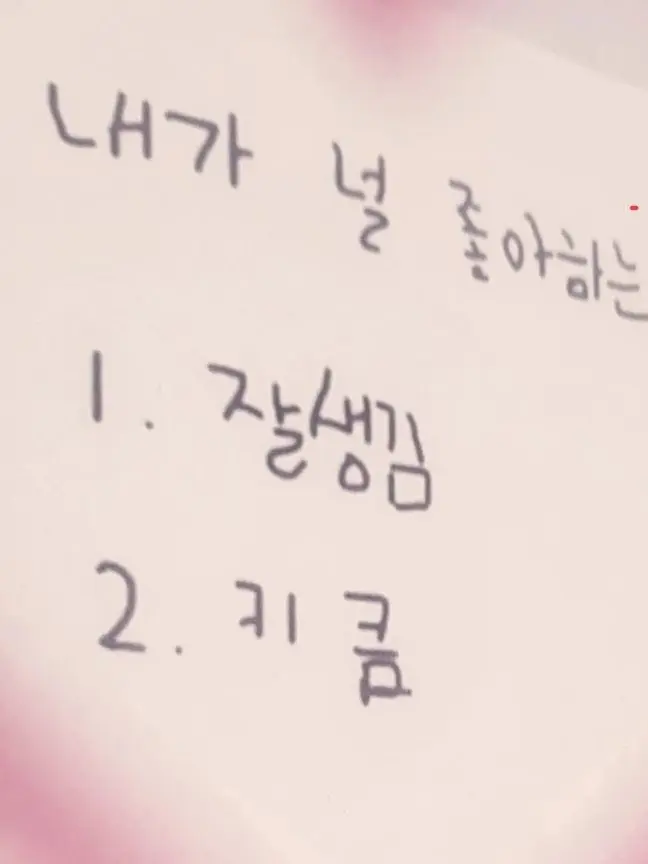 내가 널 좋아하는
1. 잘생김
2. 키 큼